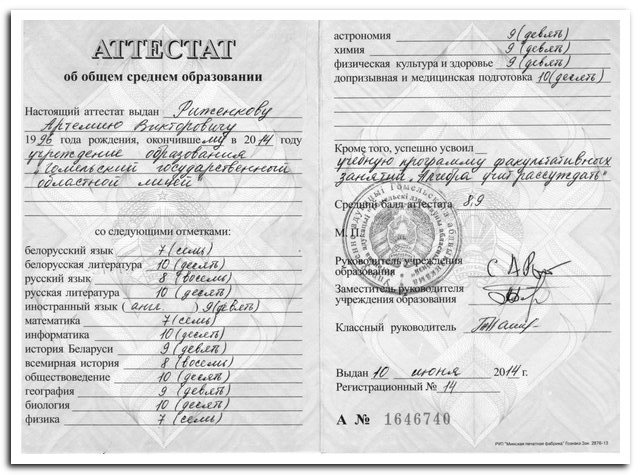 АТТЕСТАТ
об общем среднем образовании
Настоящий аттестат выдан Риженкову
Артемию Викторовичу
1996 года рождения, окончившему в 2014 году
учреждение образования
"Гомельский государственный
областной лицей"
со следующими отметками:
белорусский язык 7 (семь)
белорусская литература 10 (десять)
русский язык 8 (восемь)
русская литература 10 (десять)
иностранный язык ( англ. ) 9 (девять)
математика 7 (семь)
информатика 10 (десять)
история Беларуси 9 (девять)
всемирная история 8 (восемь)
обществоведение 10 (десять)
география 9 (девять)
биология 10 (десять)
физика 7 (семь)
астрономия 9 (девять)
химия 9 (девять)
физическая культура и здоровье 9 (девять)
допризывная и медицинская подготовка 10 (десять)
Кроме того, успешно усвоил
учебную программу факультативных
занятий учит рассуждать"
Средний балл аттестата 8,9
М. П.
Руководитель учреждения
образования
Заместитель руководителя
учреждения образования
Классный руководитель
Выдан 10 июня 2014 г.
Регистрационный № 14
А № 1646740
РУП "Минская печатная фабрика" Гознака Зак. 2876-13